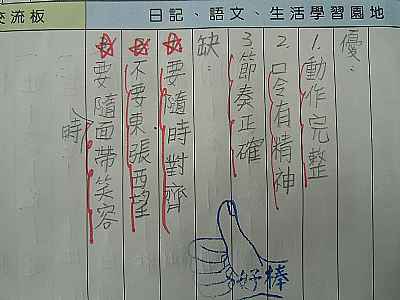 日記、語文、生活學習園地
交流板
優：
1.動作完整
2.口令有精神
3.節奏正確
缺：
要隨時對齊
不要東張西望
要隨時面帶笑容
好棒